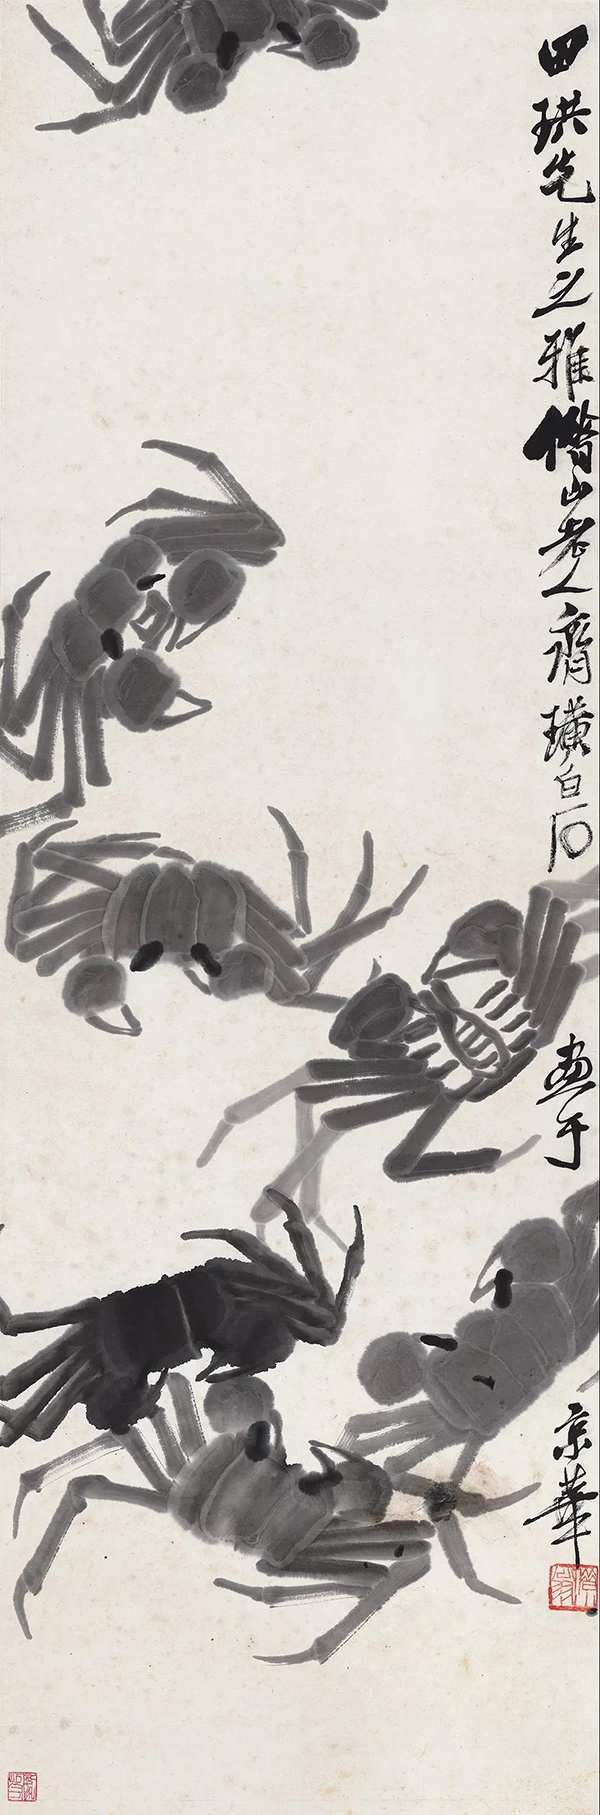 田珙先生之雅 借山老人齊璜白石 畫于 京華